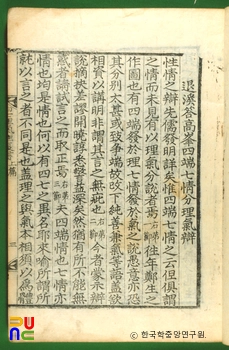 退溪答高峯四端七情分理氣辯
性情之辯先儒發明詳矣惟四端七情之云但俱謂
之情而未見有以理氣分說者焉右第一節往年鄭生之
作圖也有四端發於理七情發於氣之說愚意亦恐
其分別太甚或致爭端故改下純善兼氣等語蓋欲
相資以講明非謂其言之無疵也右第二節今者蒙示辯
說摘抉差謬開曉諄悉警益深矣然猶有所不能無
惑者請試言之而取正焉右第三節夫四端情也七情亦
情也均是情也何以有四七之異名耶來喩所謂所
就以言之者不同是也蓋理之與氣本相須以爲體
한국학중앙연구원